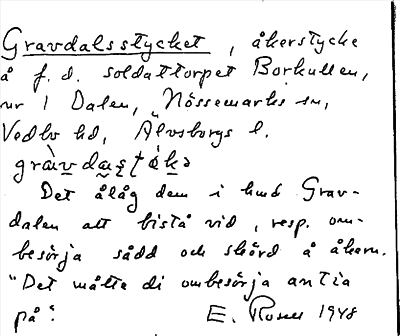 Gravdalsstycket, åkerstycke
å f. d. soldattorpet Borkullen,
nr 1 Dalen, Nössemarks sn,
Vedbo hd, Älvsborgs l.
Det ålåg dem i hmd Grav-
dalen att bistå vid, resp. om-
besörja sådd och skörd å åkern.
"Det måtta di ombesörja antia
på".     E. 1948